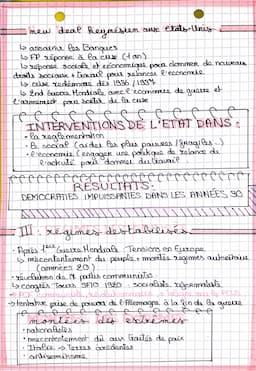 new deal Keynésien aux États-Unis
↳ assainir les Banques
↳ FP réponse à la crise (1 an)
↳ réponse sociale et économique pour donner de nouveaux
droits sociaux + travail pour relancer l'économie
↳ crise redémarre dès 1936/1937
↳ 2nd Guerre Mondiale avec l'économie de guerre et
l'armement pour sortir de la crise
INTERVENTIONS DE L'ÉTAT DANS :
• la réglementation
• B. social (aides les plus pauvres /
• l'économie (engager une politique de relance de
l'activité pour donner du travail
RÉSULTATS :
DÉMOCRATIES IMPUISSANTES DANS LES ANNÉES 30
III : régimes déstabilisés
• Après 1ère Guerre Mondiale : Tensions en Europe
↳ mécontentement du peuple + montée régimes autoritaires
(années 20)
• révolution de partis communistes
↳ congrès Tours SFIO 1920 : socialistes, réformistes
↳ tentative prise de pouvoir de l'Allemagne à la fin de la guerre
montées des extrêmes
• nationalistes
• mécontentement dû aux traités de paix
• Italie → Terres
• antisémitisme